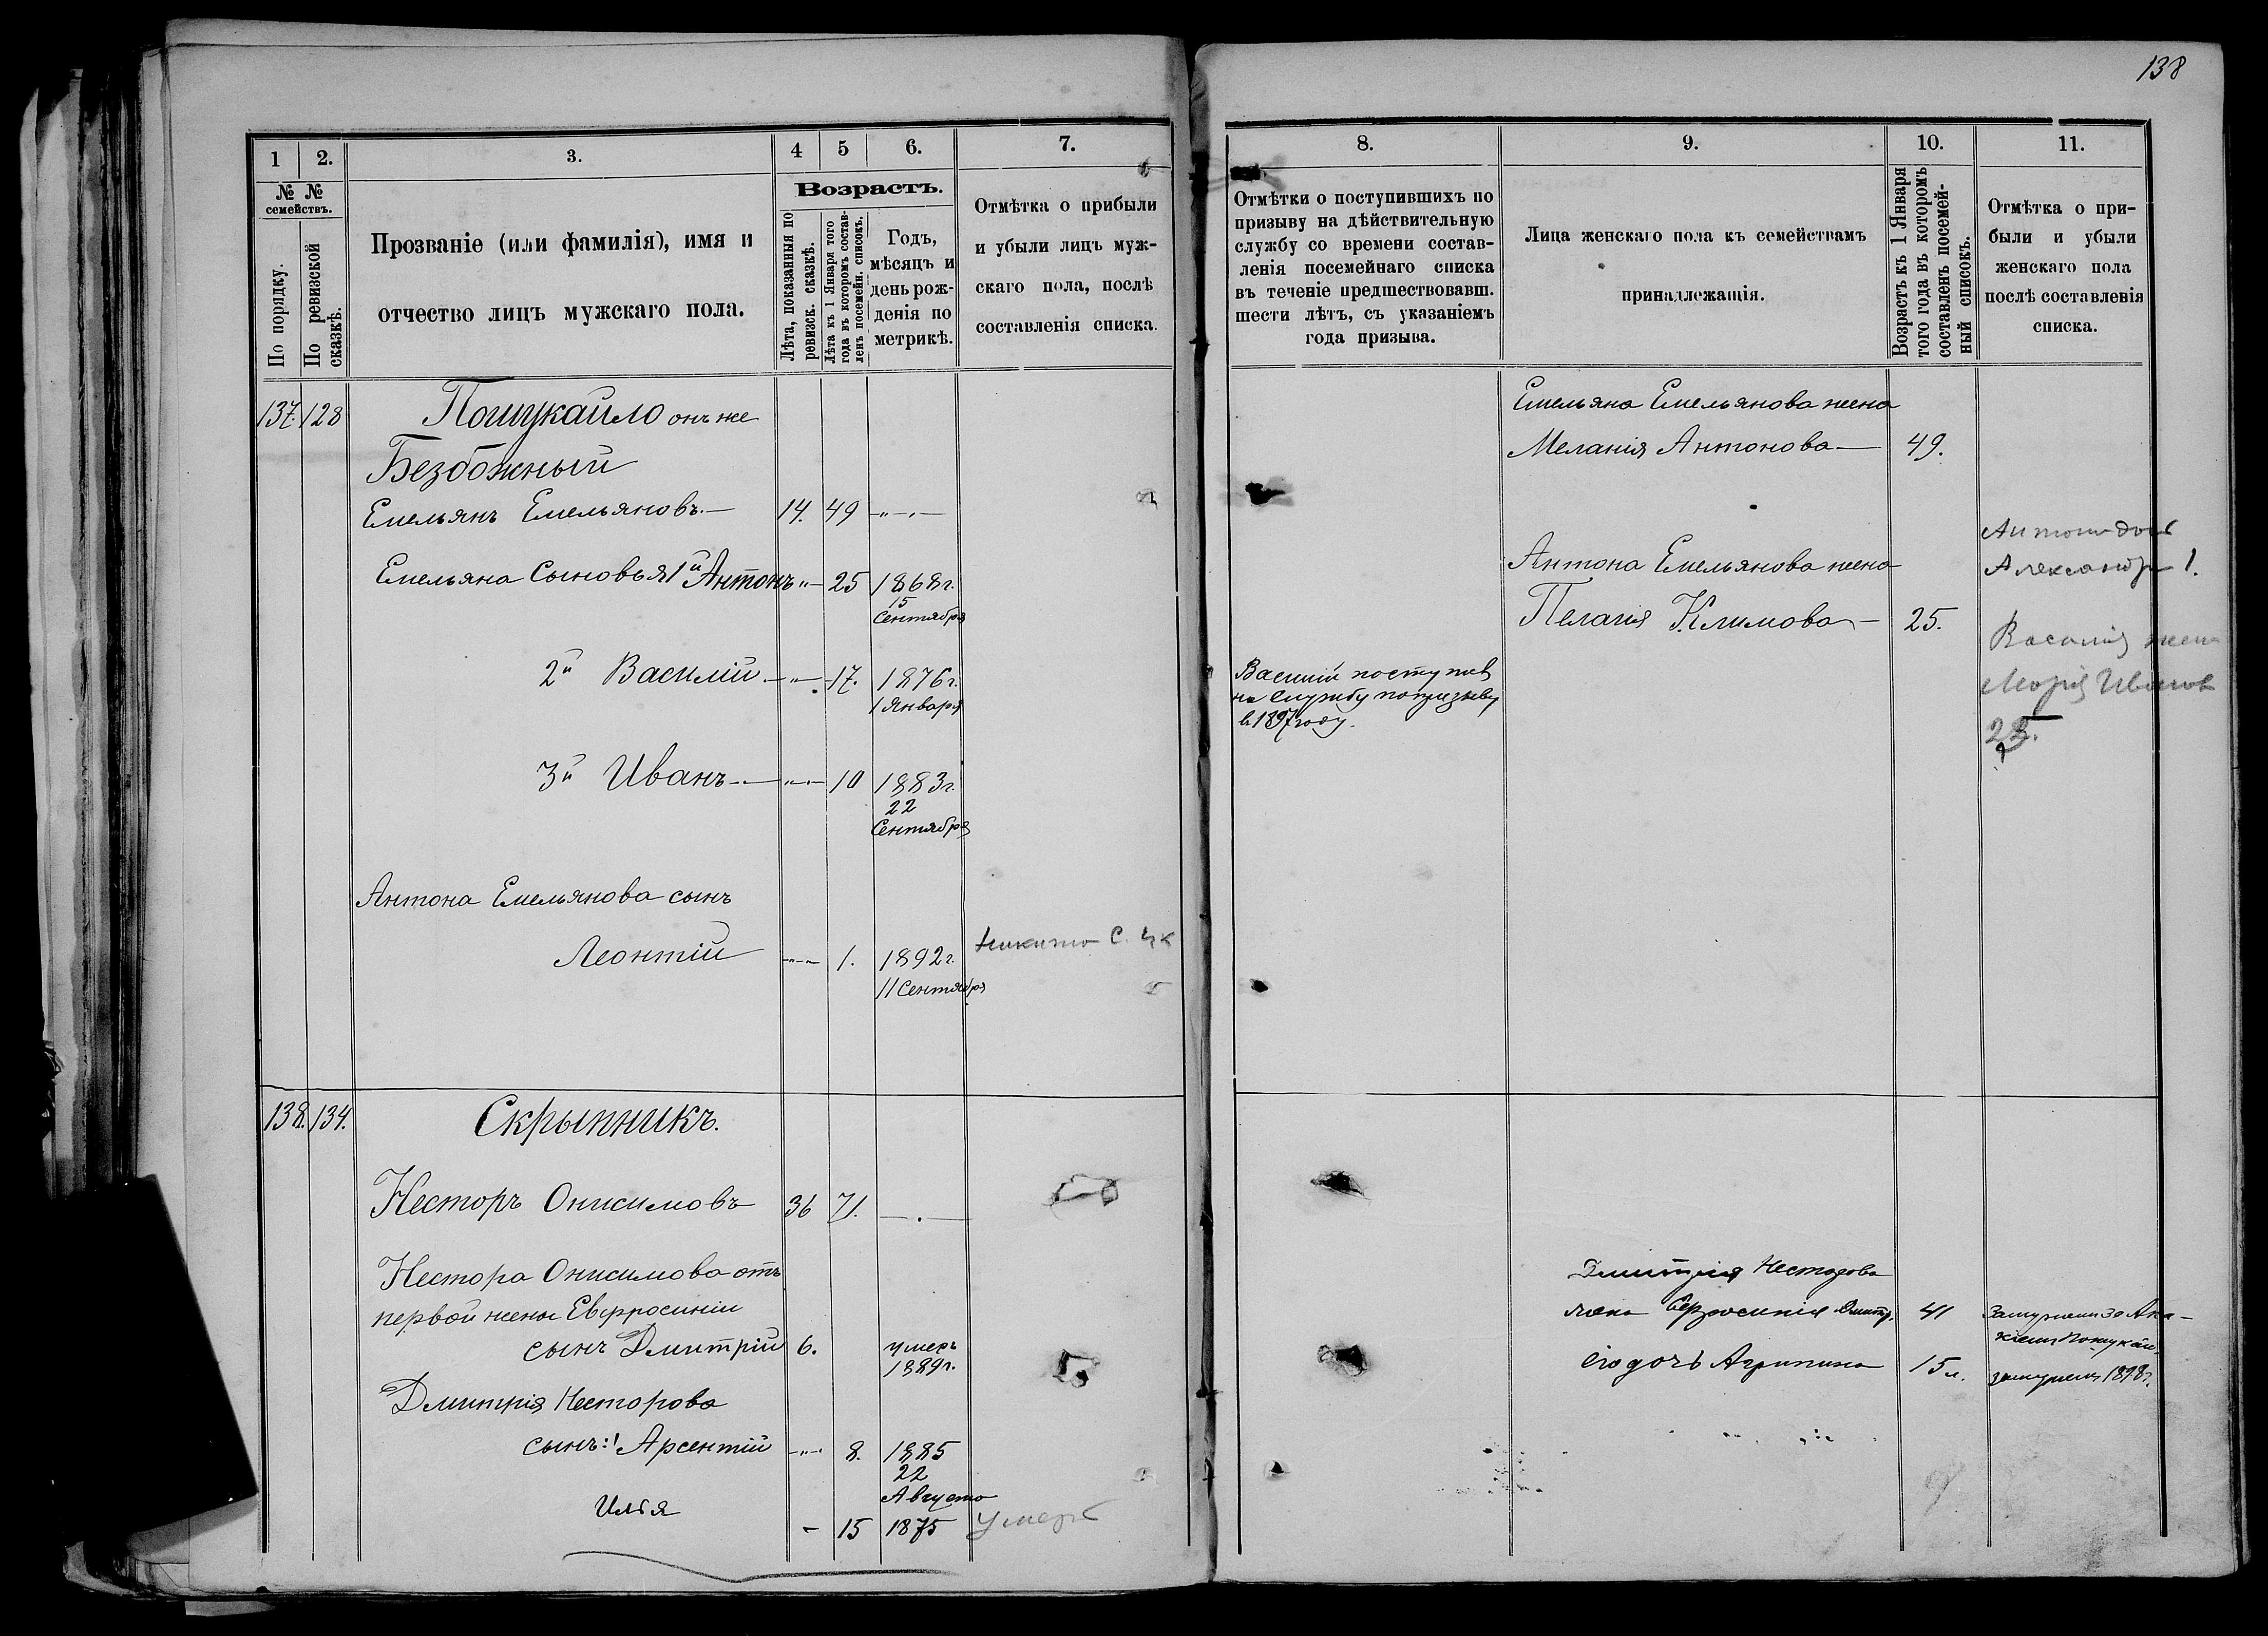 138
1
2.
3.
4
5
6.
7.
№ №
семействъ.
По порядку.
По ревизской
сказкѣ.
Прозваніе (или фамилія), имя и
отчество лицъ мужскаго пола.
Возрастъ.
Лѣта, показанныя по
ревизск. сказкѣ.
Лѣта къ 1 Января того
года въ которомъ состав-
ленъ посемейн. списокъ.
Годъ,
мѣсяцъ и
день рож-
денія по
метрикѣ.
Отмѣтка о прибыли
и убыли лицъ муж-
скаго пола, послѣ
составленія списка.
137. 128
Пошукайло онъ же
Безбожный
Емельянъ Емельяновъ.— 14. 49 —„—
Емельяна Сыновья 1й Антонъ „— 25 1868г.
15
Сентября
2й Василій —„— 17. 1876г.
1 Января
3й Иванъ —„— 10 1883г.
22
Сентября
Антона Емельянова сынъ
Леонтій —„— 1. 1892г.
11 Сентября
Никита С.
138. 134.
Скрыпникъ.
Несторъ Онисимовъ 36 71. —.—
Нестора Онисимова отъ
первой жены Евфросиніи
сынъ Дмитрій 6. умеръ
1889г.
Дмитрія Несторова
сынъ: Арсентій —„— 8. 1885
22
Августа
Илья — 15 1875 умеръ
8.
9.
10.
11.
Отмѣтки о поступившихъ по
призыву на дѣйствительную
службу со времени состав-
ленія посемейнаго списка
въ теченіе предшествовавш.
шести лѣтъ, съ указаніемъ
года призыва.
Лица женскаго пола къ семействамъ
принадлежащія.
Возрастъ къ 1 Января
того года въ которомъ
составленъ посемей-
ный списокъ.
Отмѣтка о при-
были и убыли
женскаго пола
послѣ составленія
списка.
Емельяна Емельянова жена
Меланія Антонова — 49.
Антона доч
Александр 1.
Антона Емельянова жена
Пелагія Климова — 25.
Василій поступив
на службу по призыву
в 1897 году.
Василія жена
Марія Иванов
Дмитрія Несторова
жена Ефросинія Дмитр. 41
замужем за Ака-
кіем Пошукай.
его дочь Агрипина 15 л. замужем 1898г.